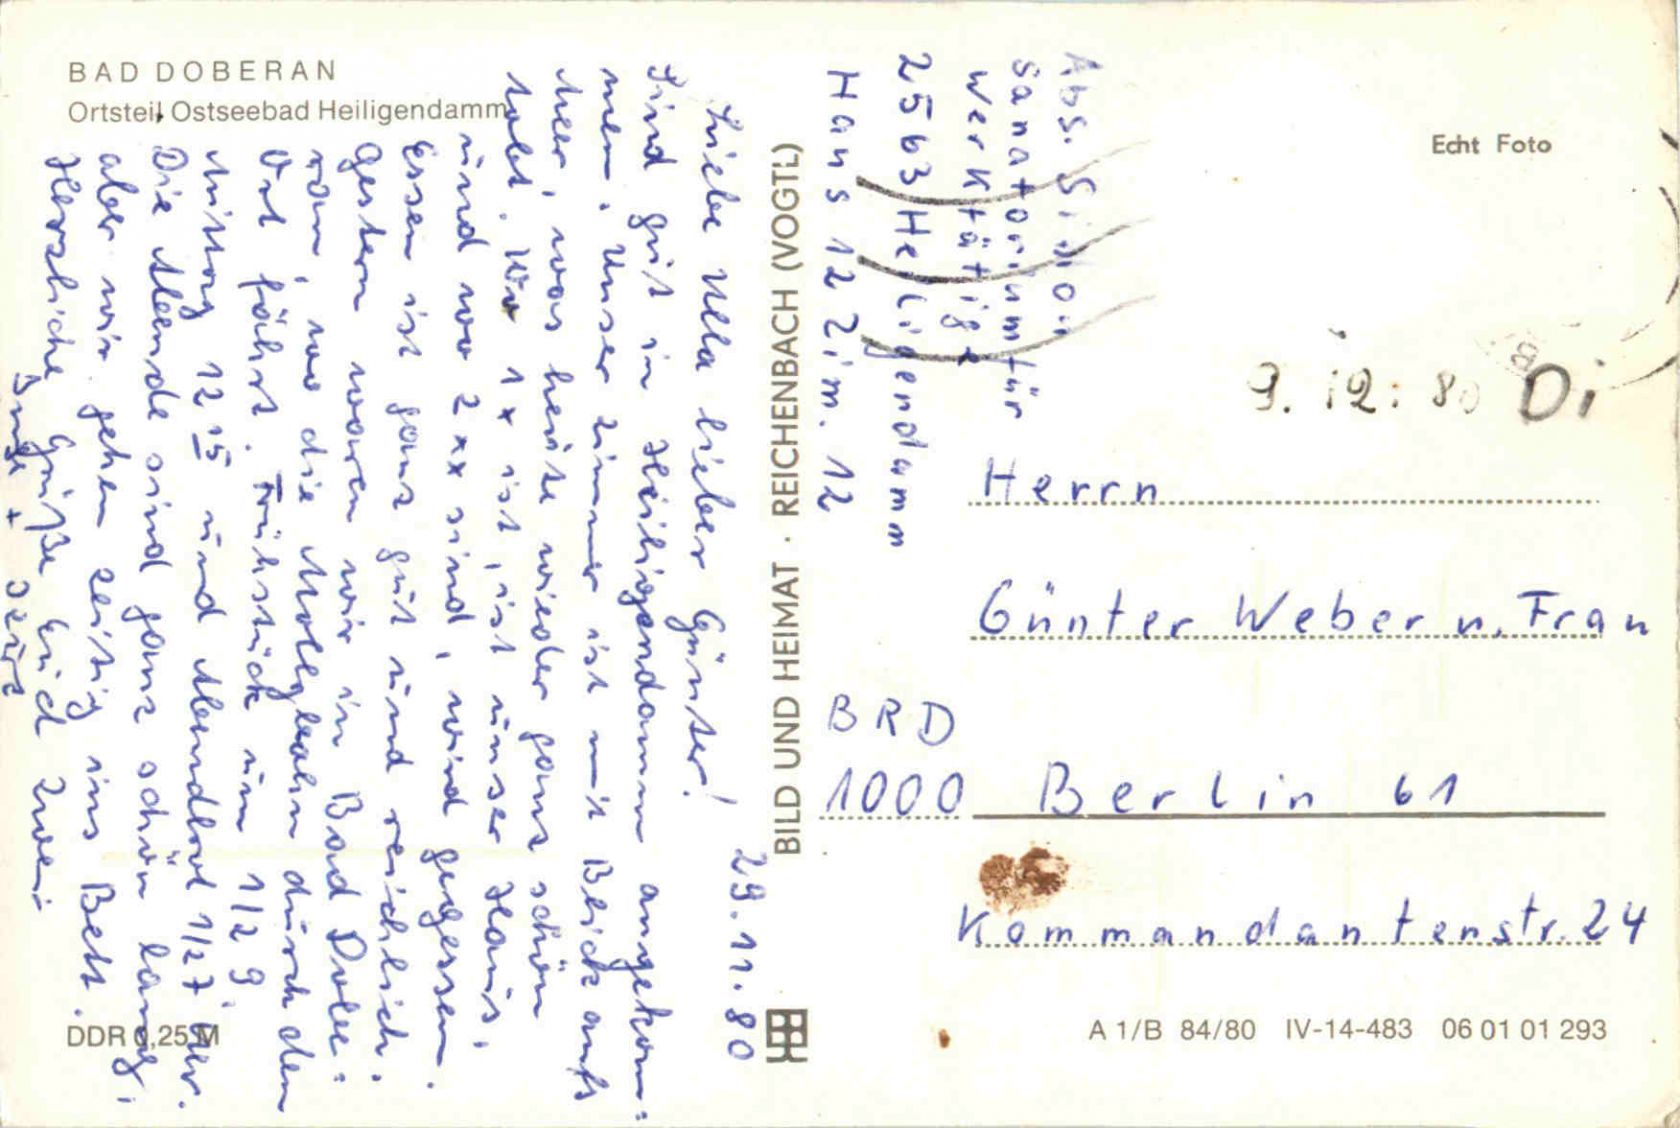 BAD DOBERAN
Ortsteil Ostseebad Heiligendamm
29.11.80
Liebe Ulla lieber Günter!
Sind gut in Heiligendamm angekom=
men. Unser Zimmer ist mit Blick aufs
Meer, was heute wieder ganz schön
tobt. Wo 1x ist, ist unser Haus,
und wo 2xx sind, wird gegessen.
Essen ist ganz gut und reichlich.
Gestern waren wir in Bad Dobe=
ran, wo die Mollybahn durch den
Ort fährt. Frühstück um 1/2 9
Mittag 12 15 und Abendbrot 1/2 7 Uhr.
Die Abende sind ganz schön lang,
aber wir gehen zeitig ins Bett.
Herzliche Grüße Euch Zwei
Inge +
DDR 0,25 M
BILD UND HEIMAT · REICHENBACH (VOGTL)
Abs. Simon
Sanatorium für
Werktätige
2563 Heiligendamm
Haus 12 Zim. 12
Echt Foto
9. 12: 80 Di
Herrn
Günter Weber u. Frau
BRD
1000 Berlin 61
Kommandantenstr. 24
A 1/B 84/80 IV-14-483 06 01 01 293